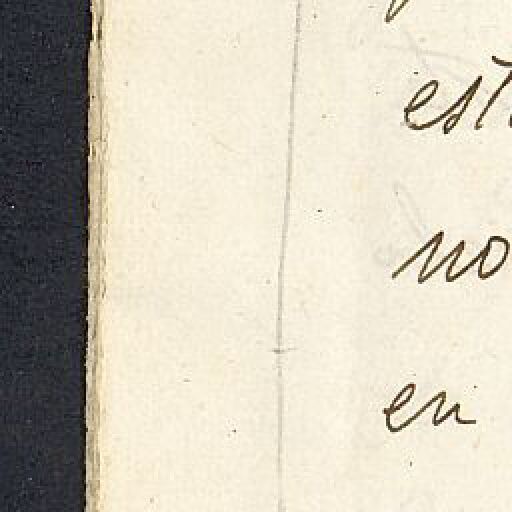 est
no
en